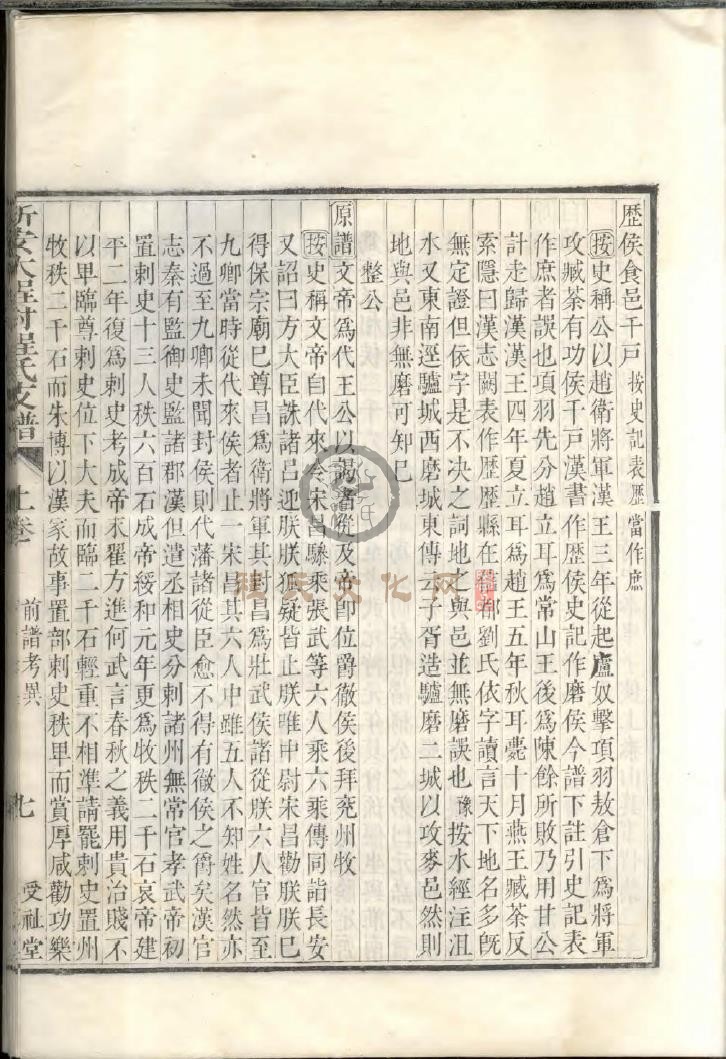 歷侯食邑千戶 按史記表歷當作庶
按史稱公以趙衛將軍漢王三年從起盧奴擊項羽敖倉下爲將軍
攻臧荼有功侯千戶漢書作歷侯史記作磨侯今譜下註引史記表
作庶者誤也項羽先分趙立耳爲常山王後爲陳餘所敗乃用甘公
計走歸漢漢王四年夏立耳爲趙王五年秋耳薨十月燕王臧荼反
索隱曰漢志闕表作歷歷縣在信都劉氏依字讀言天下地名多旣
無定證但依字是不决之詞地之與邑並無磨誤也豫按水經注沮
水又東南逕驢城西磨城東傳云子胥造驢磨二城以攻麥邑然則
地與邑非無磨可知巳
整公
原譜文帝爲代王公以謁者從及帝卽位爵徹侯後拜兖州牧
按史稱文帝自代來令宋昌驂乘張武等六人乘六乘傳同詣長安
又詔曰方大臣誅諸呂迎朕朕狐疑皆止朕唯中尉宋昌勸朕朕巳
得保宗廟巳尊昌爲衛將軍其封昌爲壯武侯諸從朕六人官皆至
九卿當時從代來侯者止一宋昌其六人中雖五人不知姓名然亦
不過至九卿未聞封侯則代藩諸從臣愈不得有徹侯之爵矣漢官
志秦有監御史監諸郡漢但遣丞相史分刺諸州無常官孝武帝初
置刺史十三人秩六百石成帝綏和元年更爲牧秩二千石哀帝建
平二年復爲刺史考成帝末翟方進何武言春秋之義用貴治賤不
以卑臨尊刺史位下大夫而臨二千石輕重不相準請罷刺史置州
牧秩二千石而朱博以漢家故事置部刺史秩卑而賞厚咸勸功樂
新安大程村程氏支譜 上卷 前譜考異 七 受祉堂
程氏文化网